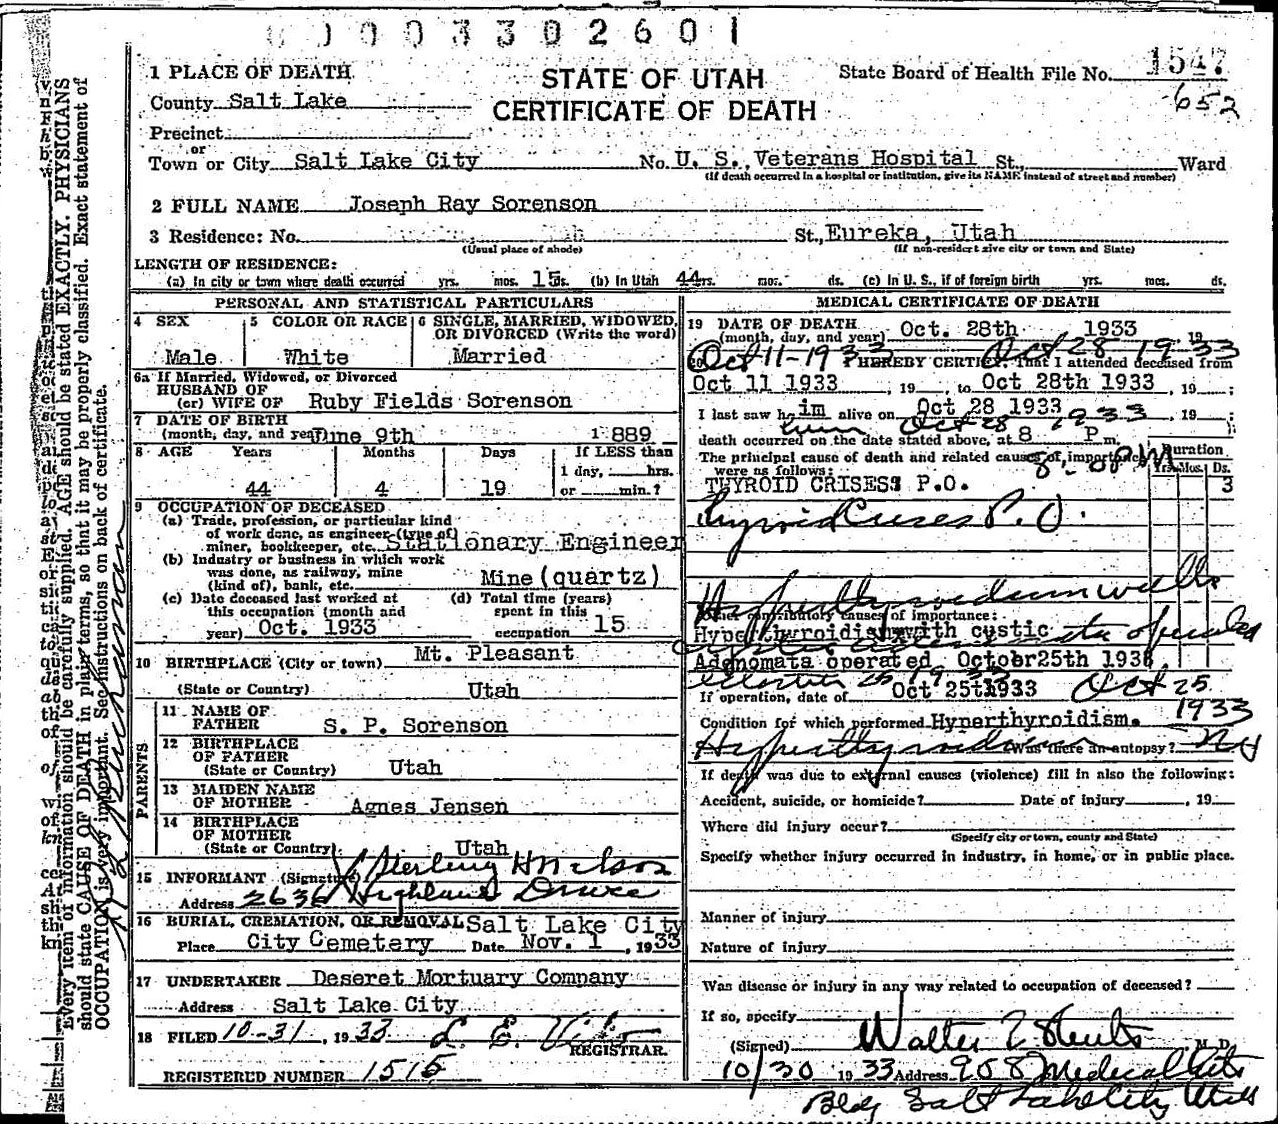 0003302601
1547
652
STATE OF UTAH
CERTIFICATE OF DEATH
State Board of Health File No.
1 PLACE OF DEATH
County Salt Lake
Precinct
or
Town or City Salt Lake City No. U. S., Veterans Hospital St., Ward
(If death occurred in a hospital or institution, give its NAME instead of street and number)
2 FULL NAME Joseph Ray Sorenson
3 Residence: No. St., Eureka, Utah
(Usual place of abode) (If non-resident give city or town and State)
LENGTH OF RESIDENCE:
(a) In city or town where death occurred yrs. mos. 15 ds. (b) In Utah 44 yrs. mos. ds. (c) In U. S., if of foreign birth yrs. mos. ds.
PERSONAL AND STATISTICAL PARTICULARS
4 SEX 5 COLOR OR RACE 6 SINGLE, MARRIED, WIDOWED, OR DIVORCED (Write the word)
Male White Married
6a If Married, Widowed, or Divorced
HUSBAND OF
(or) WIFE OF Ruby Fields Sorenson
7 DATE OF BIRTH
(month, day, and year) June 9th 1889
8 AGE Years Months Days If LESS than
1 day, hrs.
44 4 19 or min.?
9 OCCUPATION OF DECEASED
(a) Trade, profession, or particular kind
of work done, as engineer (type of)
miner, bookkeeper, etc. Stationary Engineer
(b) Industry or business in which work
was done, as railway, mine
(kind of), bank, etc. Mine (quartz)
(c) Date deceased last worked at
this occupation (month and
year) Oct. 1933
(d) Total time (years)
spent in this
occupation 15
10 BIRTHPLACE (City or town) Mt. Pleasant
(State or Country) Utah
PARENTS
11 NAME OF
FATHER S. P. Sorenson
12 BIRTHPLACE
OF FATHER
(State or Country) Utah
13 MAIDEN NAME
OF MOTHER Agnes Jensen
14 BIRTHPLACE
OF MOTHER
(State or Country) Utah
15 INFORMANT (Signature) Sterling H Nelson
Address 2636 Highland Drive
16 BURIAL, CREMATION, OR REMOVAL Salt Lake City
Place City Cemetery Date Nov. 1, 1933
17 UNDERTAKER Deseret Mortuary Company
Address Salt Lake City
18 FILED 10-31, 1933
REGISTRAR.
REGISTERED NUMBER 1515
MEDICAL CERTIFICATE OF DEATH
19 DATE OF DEATH
(month, day, and year) Oct. 28th 1933 19
Oct 11-1933 Oct 28 1933
20 I HEREBY CERTIFY, That I attended deceased from
Oct 11 1933, 19 to Oct 28th 1933, 19 ;
I last saw him alive on Oct 28 1933, 19 ;
him Oct 28 1933
death occurred on the date stated above, at 8 P m.
8:00 PM
The principal cause of death and related causes of importance
were as follows:
Duration
Yrs. Mos. Ds.
THYROID CRISESS P.O. 3
Thyroid Crises P.O.
Other contributory causes of importance:
Hyperthyroidism with cystic
Adenomata operated October 25th 1933
If operation, date of Oct 25th 1933 Oct 25
1933
Condition for which performed Hyperthyroidism.
Hyperthyroidism Was there an autopsy? No
If death was due to external causes (violence) fill in also the following:
Accident, suicide, or homicide? Date of injury , 19
Where did injury occur?
(Specify city or town, county and State)
Specify whether injury occurred in industry, in home, or in public place.
Manner of injury
Nature of injury
Was disease or injury in any way related to occupation of deceased?
If so, specify
(Signed) Walter M. D.
10/30 1933 Address 958 Medical Arts
Bldg Salt Lake City Utah
Every item of information should be carefully supplied. AGE should be stated EXACTLY. PHYSICIANS
should state CAUSE OF DEATH in plain terms, so that it may be properly classified. Exact statement of
OCCUPATION is very important. See instructions on back of certificate.